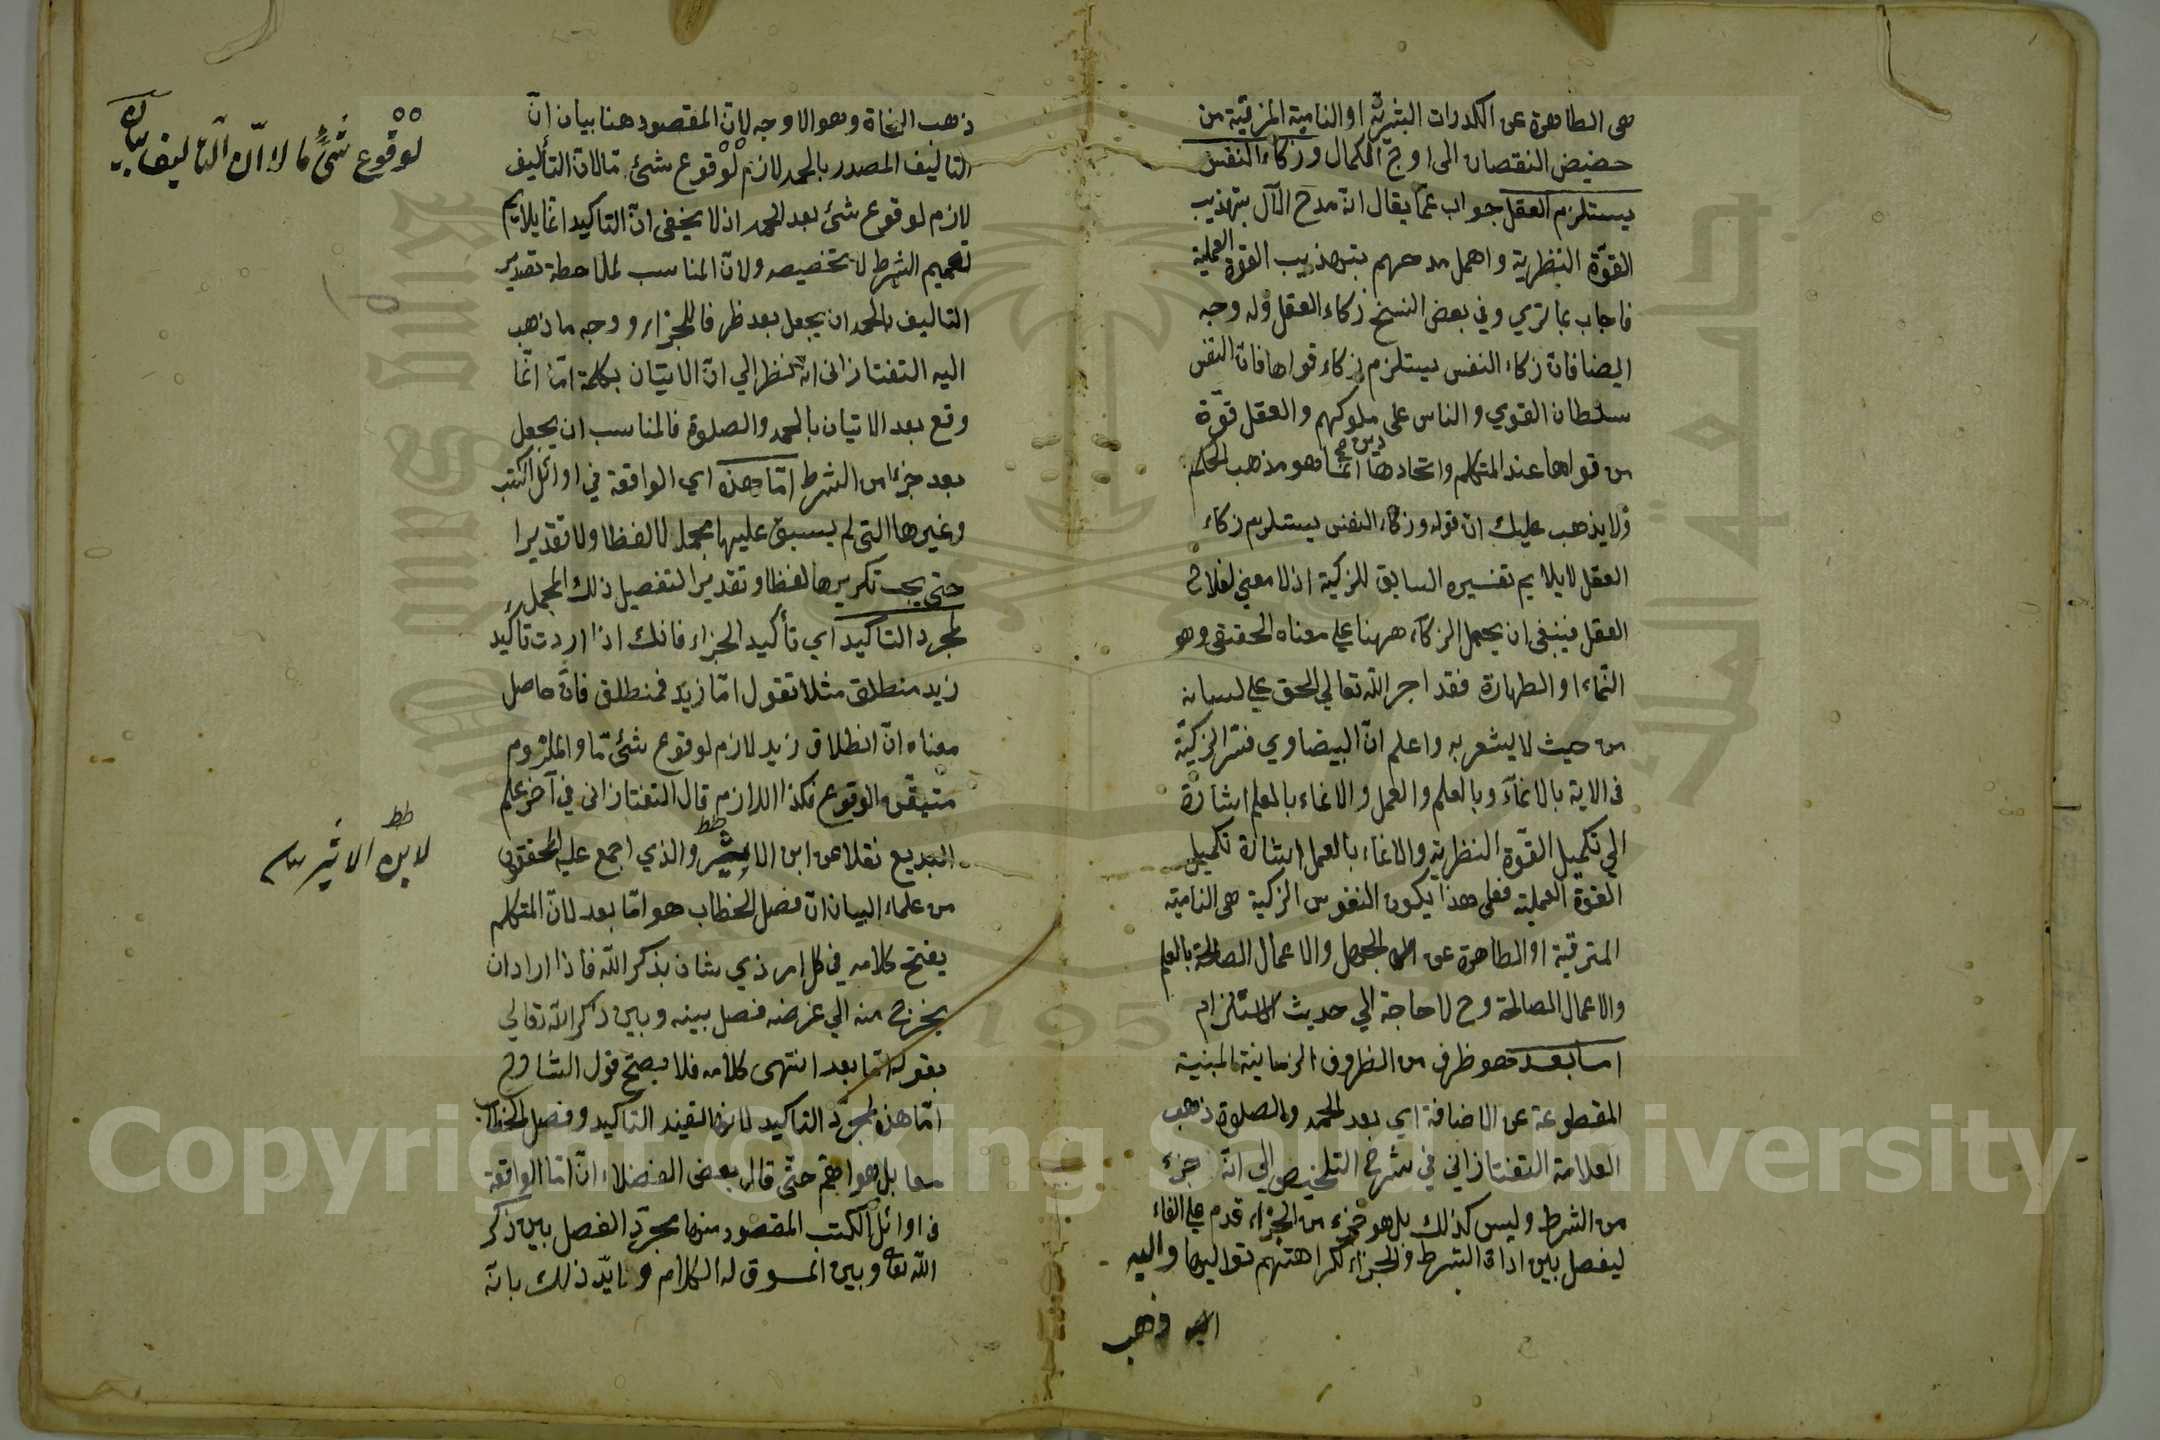 هى الطاهرة عن الكدرات البشرية او النامية المترقية من
حضيض النقصان الى اوج الكمال وزكاء النفس
يستلزم العقل جواب عمّا يقال انه مدح الآل بتهذيب
القوّة النظرية واهمل مدحهم بتهذيب القوة العملية
فاجاب بما ترى وفي بعض النسخ زكاء العقل وله وجه
ايضا فان زكاء النفس يستلزم زكاء قواها فان النفس
سلطان القوي والناس على ملوكهم والعقل قوّة
من قواها عند المتكلم واتحادها انما هو مذهب الحكيم
ولا يذهب عليك ان قوله وزكاء النفس يستلزم زكاء
العقل لا يلايم تفسيره السابق للزكية اذ لا معنى لفلاح
العقل فينبغى ان يحمل الزكاء ههنا على معناه الحقيقي وهو
النماء او الطهارة فقد اجر الله تعالي الحق على لسانه
من حيث لا يشعر به واعلم انّ البيضاوي فسّر الزكيّة
فى الاية بالانماء وبالعلم والعمل والانماء بالعلم اشارة
الى تكميل القوّة النظرية والانماء بالعمل اشارة تكميل
القوة العملية فعلى هذا يكون النفوس الزكية هى النامية
المترقية او الطاهرة عن الجهل والاعمال الصالحة بالعلم
والاعمال الصالحة وح لا حاجة الي حديث الاستلزام
اما بعد هو ظرف من الظروف الزمانية المبنية
المقطوعة عن الاضافة اي بعد الحمد والصلوة ذهب
العلامة التفتازاني في شرح التلخيص الي انه جزء
من الشرط وليس كذلك بل هو جزء من الجزاء قدم على الفاء
ليفصل بين اداة الشرط والجزاء لكراهتهم تواليها واليه
ذهب
ذهب النحاة وهو الاوجه لان المقصود هنا بيان انّ
التاليف المصدر بالحمد لازم لوقوع شئ ما لان التأليف
لازم لوقوع شئ بعد الحمد اذ لا يخفى انّ التاكيد انما يلايم
تعميم الشرط لا تخصيصه ولان المناسب لملاحظة تصدير
التاليف بالحمد ان يجعل بعد ظرفا للجزاء ووجه ما ذهب
اليه التفتازانى انه نظر الي انّ الاتيان بكلمة امّا انّما
وقع بعد الاتيان بالحمد والصلوة فالمناسب ان يجعل
بعد جزءا من الشرط امّا هذه اي الواقعة في اوائل الكتب
وغيرها التى لم يسبق عليها مجمل لا لفظا ولا تقديرا
حتى يجب تكريرها لفظا وتقديرا لتفصيل ذلك المجمل
لمجرد التاكيد اي تأكيد الجزاء فانك اذا اردت تأكيد
زيد منطلق مثلا تقول امّا زيد فمنطلق فانّ حاصل
معناه انّ انطلاق زيد لازم لوقوع شئ ما والملزوم
متيقّن الوقوع فكذا اللازم قال التفتازانى في آخر علم
البديع نقلا عن ابن الاثير والذي اجمع عليه المحققون
من علماء البيان انّ فصل الخطاب هو امّا بعد لانّ المتكلم
يفتح كلامه في كل امر ذي شان بذكر الله فاذا اراد ان
يخرج منه الي غرضه فصل بينه وبين ذكر الله تعالي
بقوله امّا بعد انتهى كلامه فلا يصح قول الشارح
امّا هذه لمجرّد التاكيد لانها لتفيد التاكيد وفصل الخطاب
معا بل هو اهمّ حتّى قال بعض الفضلاء انّ امّا الواقعة
فى اوائل الكتب المقصود منها مجرّد الفصل بين ذكر
الله تعا وبين المسوق له الكلام وتايّد ذلك بانه
لوقوع شئ ما لا انّ التاليف بيان
لابن الاثير